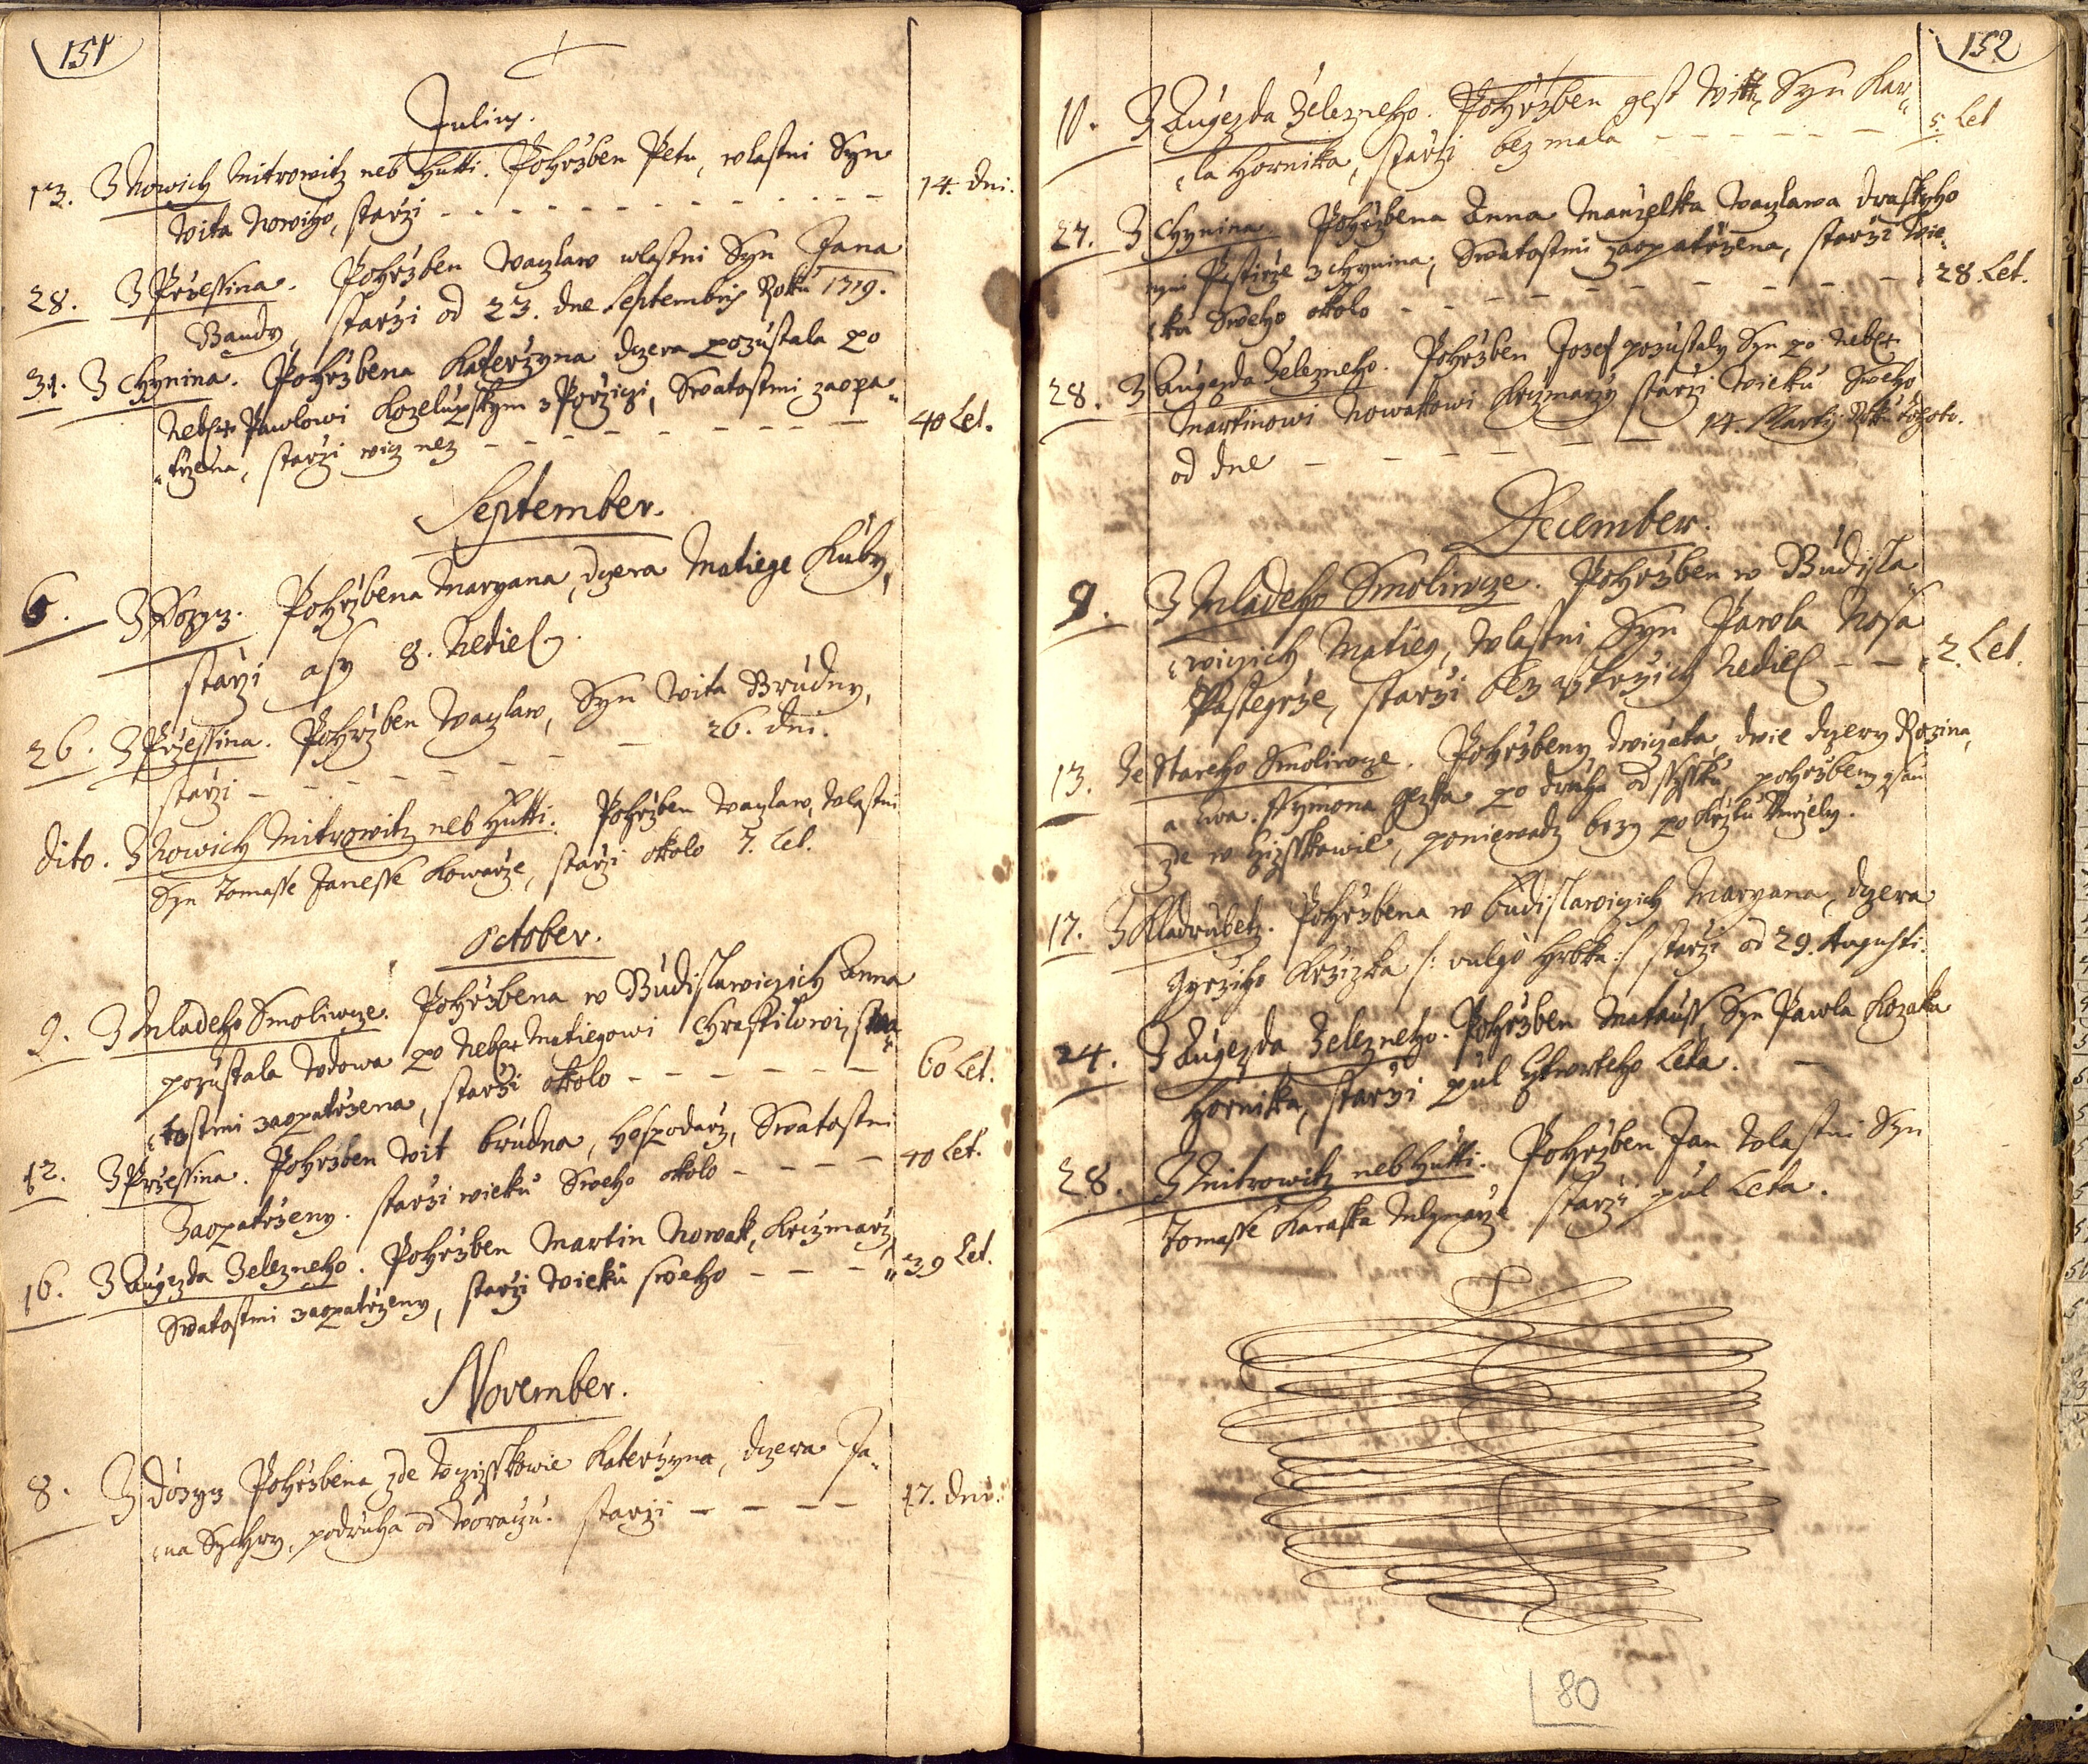 151
Julius.
13. Z Nowich Mitrowitz neb Hutti. Pohrzben Petr, wlastni Syn
Wita Nowiho, starzi - - - 14. dni.
28. Z Przessina. Pohrzben Waczlaw wlastni Syn Jana
Bandy, starzi od 23. dne Septembris Roku 1719.
31. Z Chynina. Pohrzbena Katerzyna dczera pozustala po
Neb Pawlowi Kozelupskym z Porziczi, Swatostmi zaopa„
„trzena, starzi wicz nez - - - 40 Let.
September.
6. Z Rozyz. Pohrzbena Maryana, dczera Matiege Kuby,
starzi asy 8. Nediel.
26. Z Przessina. Pohrzben Waczlaw, Syn Wita Brudny,
starzi - - - 26. dni.
dito. Z Nowich Mitrowitz neb Hutti. Pohrzben Waczlaw, wlastni
Syn Tomasse Janesse Kowarze, starzi okolo 7. Let.
October.
2. Z Mladeho Smoliwcze. Pohrzbena w Budislawiczich Anna
pozustala wdowa po Neb Matiegowi Chrastilowi, swa„
„tostmi zaopatrzena, starzi okolo - - - 60 Let.
12. Z Przessina. Pohrzben Wit Brudna, hospodarz, Swatostmi
zaopatrzeny. starzi wieku Sweho okolo - - - 40 Let.
16. Z Augezda Zelezneho. Pohrzben Martin Nowak, Krczmarz,
Swatostmi zaopatrzeny, starzi wieku sweho - - - 39 Let.
November.
8. Z dozyz Pohrzbena zde w Czizkowie Katerzyna, dczera Ja„
„na Sychry, podruha od Woraczu. starzi - - - 17. dni.
152
10. Z Augezda Zelezneho. Pohrzben gest Wit, Syn Kar„
„la Hornika, starzi bez mala - - - 5. Let
27. Z Chynina Pohrzbena Anna Manzelka Waczlawa
nyni Pastirze z Chynina, Swatostmi zaopatrzena, starzi wie„
„ku Sweho okolo - - - 28. Let.
28. Z Augezda Zelezneho. Pohrzben Jozef pozustaly Syn po Neb
Martinowi Nowakowi Krczmarzy starzi wieku Sweho
od dne - - - 14. Martij Roku tohoto.
December.
9. Z Mladeho Smoliwcze. Pohrzben w Budisla„
„wiczich Matieg, wlastni Syn Pawla Nosa
Pastegrze, starzi bez cztrzich Nediel - - 2. Let.
13. Ze Stareho Smoliwcze. Pohrzbeny dwiczata, dwie dczery Rozina,
a Ewa. Ssymona po druha od Ssyssku, pohrzbeny gsau
zde w Czizkowie, poniewadz brzy po Krztu Umrzely.
17. Z Kladrubetz. Pohrzbena w Budislawiczich Maryana, dczera
Gyrziho Krzizka /: vulgo Hrbka :/ starzi od 29. Augusti.
24. Z Augezda Zelezneho. Pohrzben Matauss, Syn Pawla Kozaka
Hornika, starzi pul cztwrteho Leta.
28. Z Mitrowitz neb Hutti. Pohrzben Jan wlastni Syn
Tomasse Karaska Mlynarze starzi pul Leta.
80